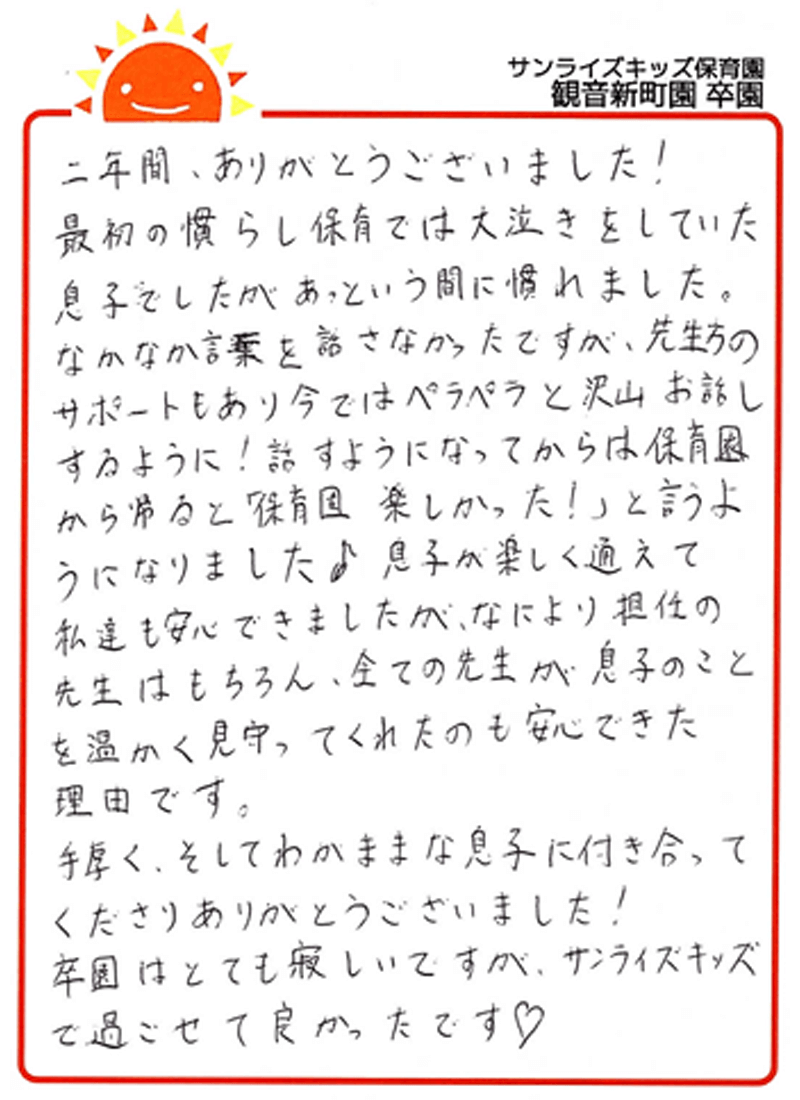 サンライズキッズ保育園
観音新町園 卒園
二年間、ありがとうございました!
最初の慣らし保育では大泣きをしていた
息子でしたがあっという間に慣れました。
なかなか言葉を話さなかったですが、先生方の
サポートもあり今ではペラペラと沢山お話し
するように!話すようになってからは保育園
から帰ると「保育園 楽しかった!」と言うよ
うになりました♪ 息子が楽しく通えて
私達も安心できましたが、なにより担任の
先生はもちろん、全ての先生が息子のこと
を温かく見守ってくれたのも安心できた
理由です。
手厚く、そしてわがままな息子に付き合って
くださりありがとうございました!
卒園はとても寂しいですが、サンライズキッズ
で過ごせて良かったです♡